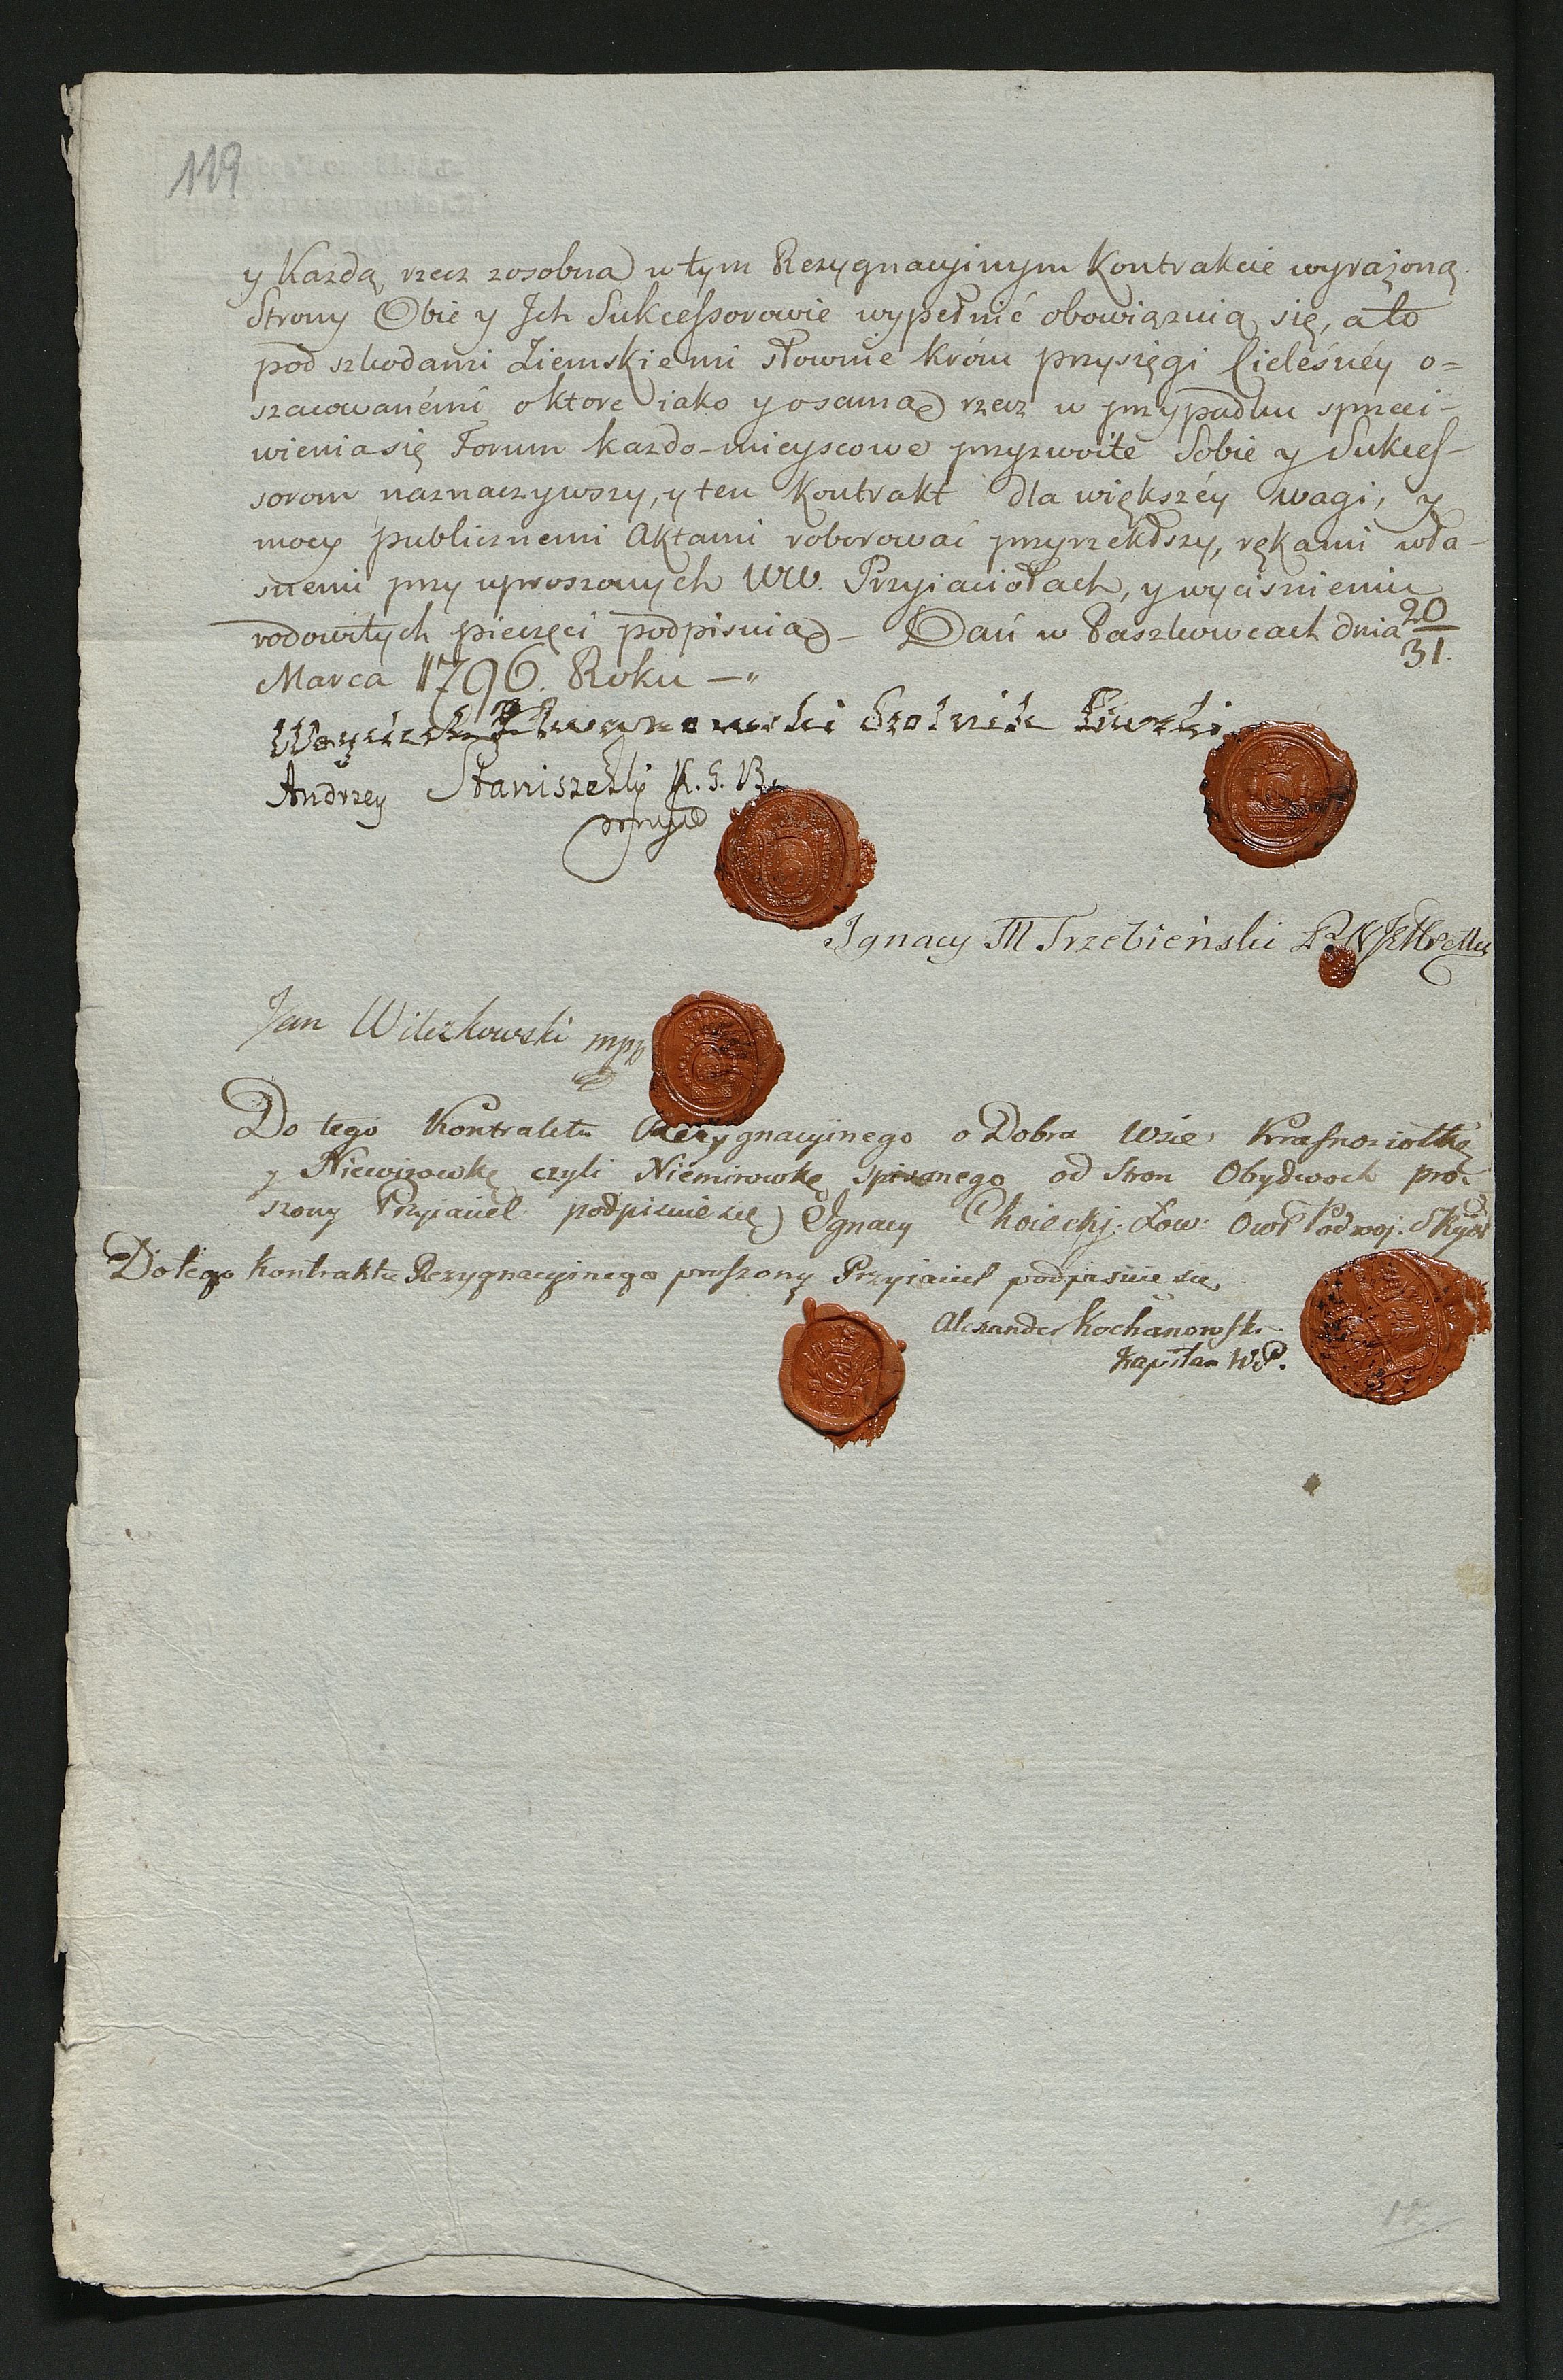 119
y Kazdą rzecz zosobna w tym Rezygnacyinym Kontrakcie wyrażoną
Strony Obie y Jch Sukcessorowie wypełnić obowiązuią się, a to
pod szkodami Ziemskiemi słownie króm przysięgi Cieleśnéy o=
szacowanémi o ktore iako y o samą rzecz w przypadku sprzeci-
wienia się Forum kazdo-mieyscowe przyzwoite Sobie y Sukces-
sorom naznaczywszy, y ten Kontrakt dla większéy wagi, y
mocy publicznemi Aktami roborować przyrzekłszy, rękami wła-
snemi przy uproszonych WW. Przyiaciołach, y wyciśnieniu
rodowitych pieczęci podpisuią - Dań w Paszkowcach dnia 20/31.
Marca 1796. Roku -
Woyciech
Andrzey Staniszewski K. G. B.
Ignacy M Trzebieński
Jan Wilczkowski mpp
Do tego Kontraktu Rezygnacyinego o Dobra Wsie Krasnosiołkę
y Niewirowkę czyli Niemirowkę spisanego od Stron Obydwoch pro-
szony Przyiaciel podpisuie się Ignacy Choiecki Łow: Owr:
Do tego Kontraktu Rezygnacyinego proszony Przyiaciel podpisuie się
Alexander Kochanowski
Kapitan W.P.